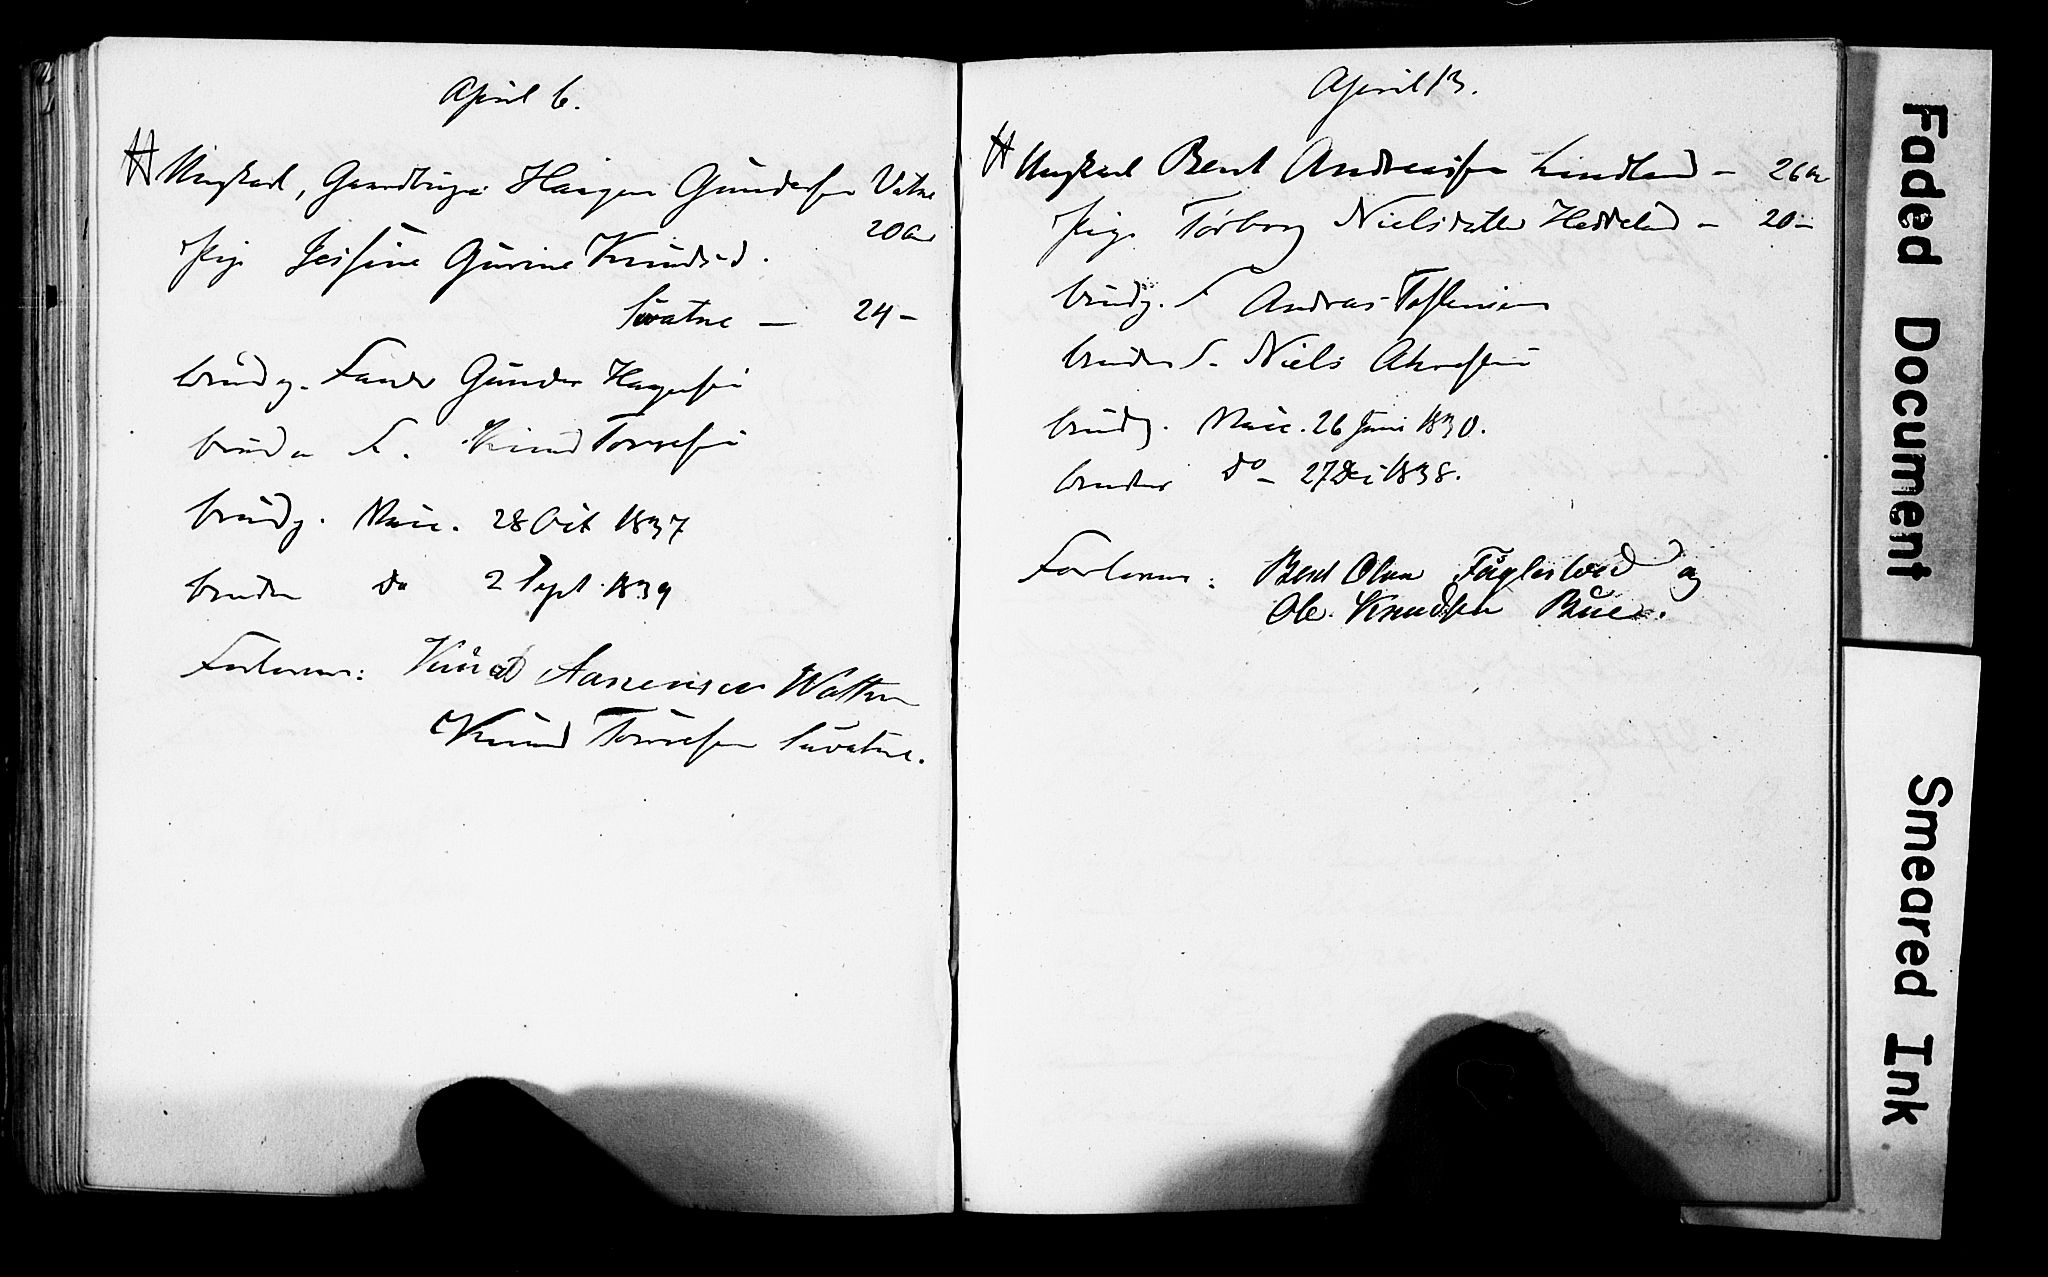 April 6.
Ungkarl, Gaardbruger Haagen Gundersen Vatne
20 Aar
Pige Jessine Gurine Knudsd.
Suvatne — 24 –
brudg. Fader Gunder Hagensen
brud F. Knud Torresen
brudg. Vacc. 28 Oct 1837
bruden do 2 Sept. 1839
Forlovere: Knud Aanensen Watne
Knud Torresen Suvatne.
April 13.
Ungkarl Bent Andreassen Lindland – 26 Aar
Pige Torborg Nielsdatter Heddeland – 20 –
brudg. F Andreas
brudens F. Niels
brudg. Vacc. 26 Juni 1830.
bruden do – 27 Dec 1838.
Forlovere: Bent Olsen Fuglestved og
Ole Knudsen Bue.
Faded Document
Smeared Ink